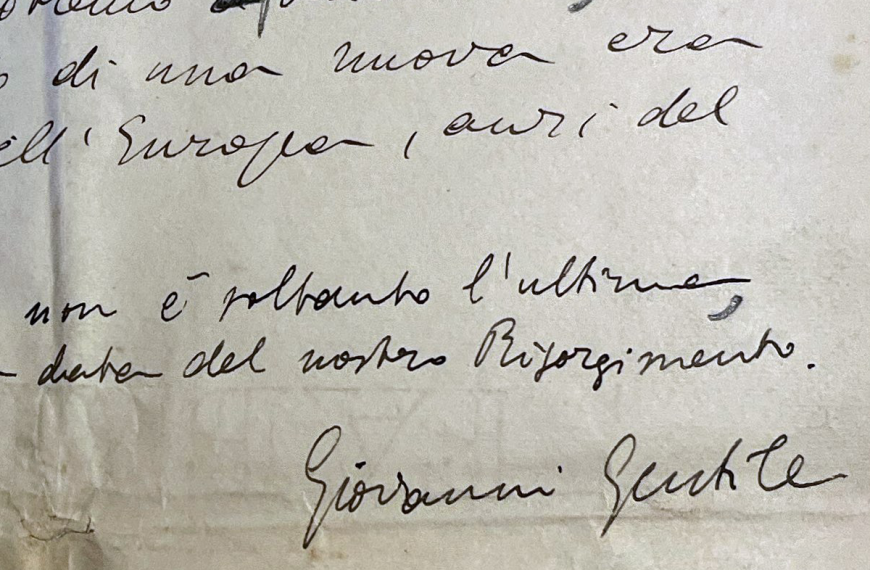 di una nuova era
ell'Europa, anzi del
non è soltanto l'ultima,
data del nostro Risorgimento.
Giovanni Gentile